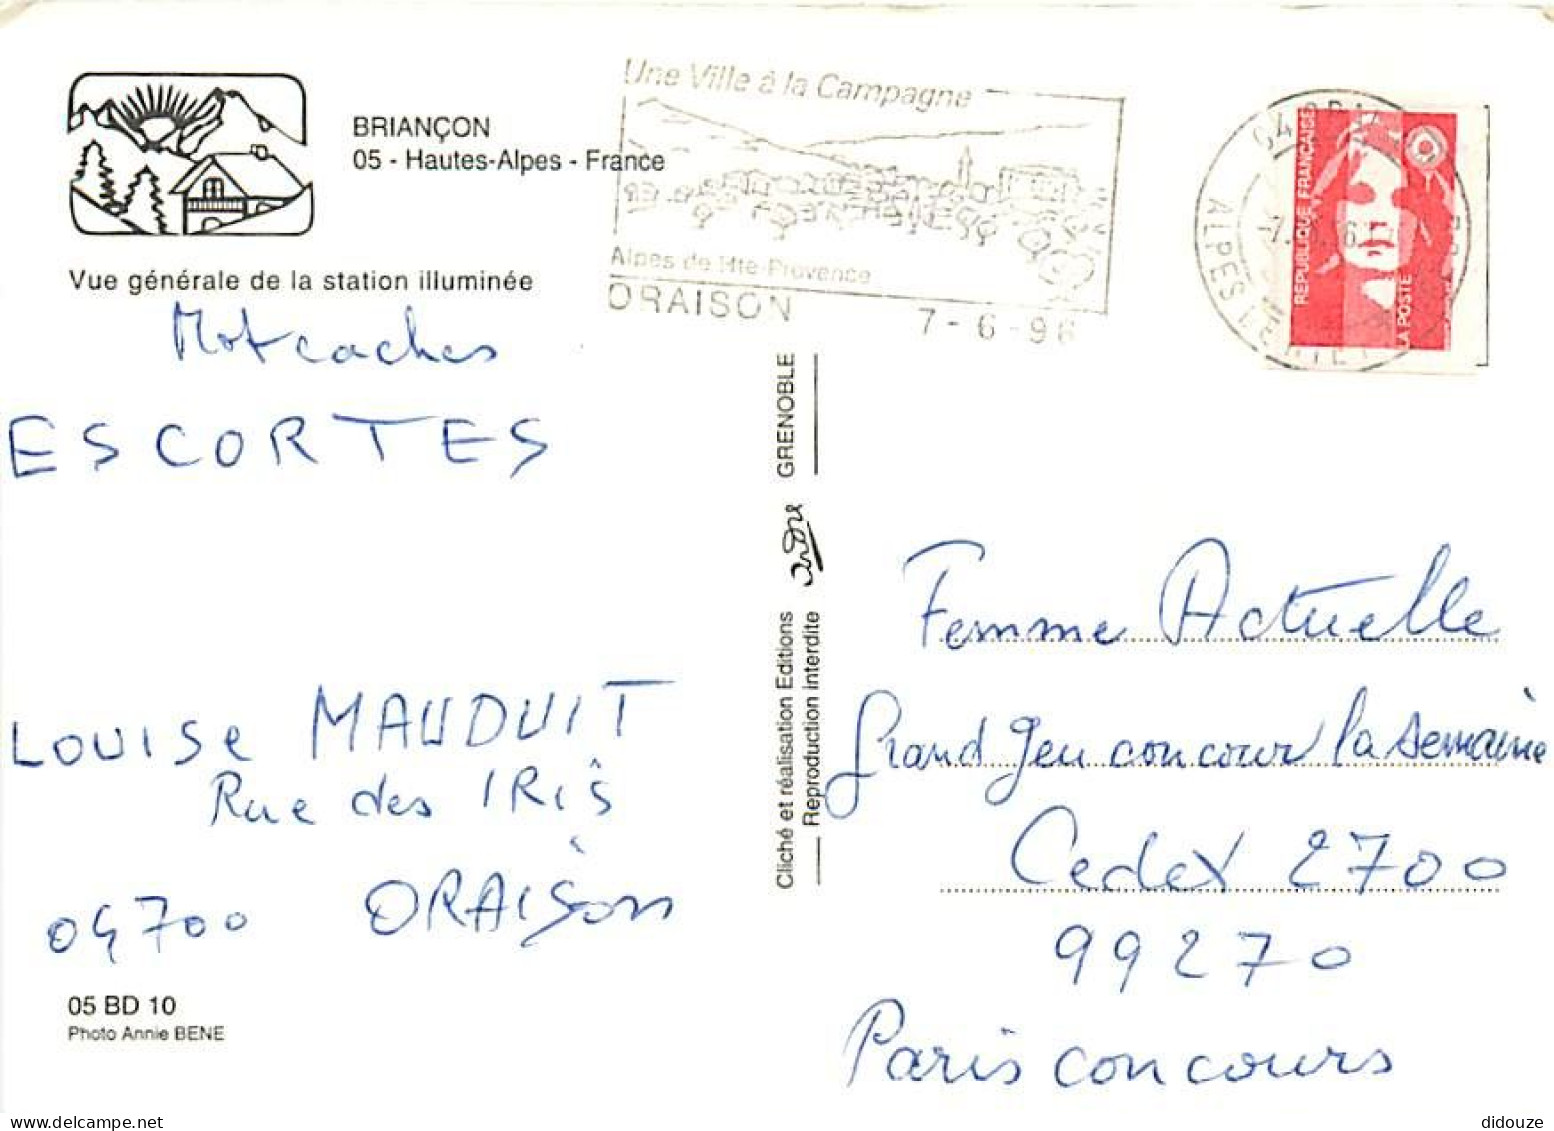 BRIANÇON
05 - Hautes-Alpes - France
Vue générale de la station illuminée
Une Ville à la Campagne
Alpes de Hte-Provence
ORAISON 7-6-96
RÉPUBLIQUE FRANÇAISE
LA POSTE
Mot caches
ESCORTES
LOUISE MAUDUIT
Rue des IRIS
04700 ORAISON
05 BD 10
Photo Annie BENE
GRENOBLE
Cliché et réalisation Editions
Reproduction interdite
Femme Actuelle
grand Jeu concour la semaine
Cedex 2700
99270
Paris concours
delcampe.net
didouze